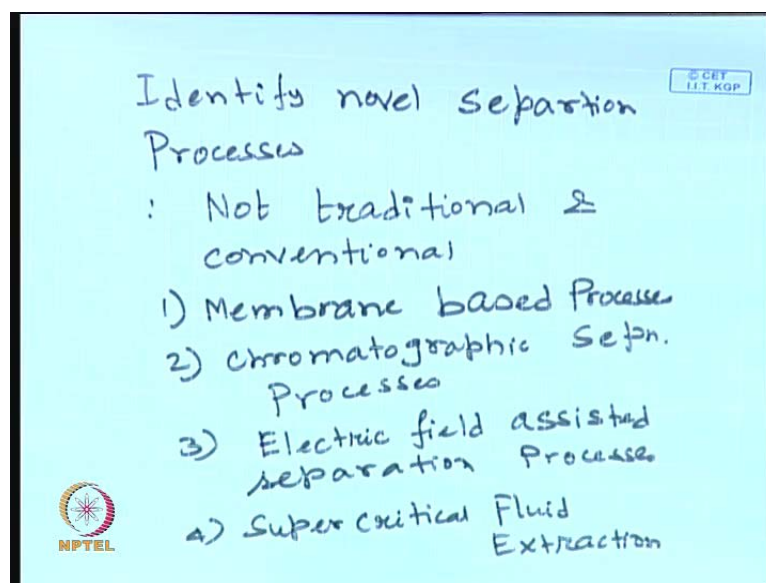 Identify novel separtion
© CET
I.I.T. KGP
Processes
: Not traditional &
conventional
1) Membrane based Processes
2) Chromatographic Sepn.
Processes
3) Electric field assisted
separation Processes
4) Super critical Fluid
Extraction
NPTEL